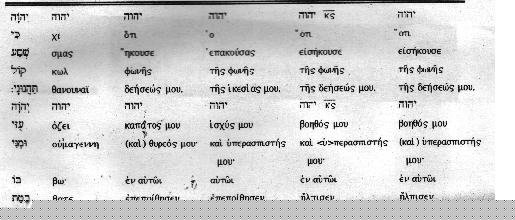 יְהוָֹה יהוה יהוה יהוה יהוה κς יהוה
כִּי χι ὅτι ὁ ὅτι ὅτι
שָׁמַע σμας ἤκουσε ἐπακούσας εἰσήκουσε εἰσήκουσε
קוֹל κωλ φωνῆς τῆς φωνῆς τῆς φωνῆς τῆς φωνῆς
תַּחֲנוּנָי: θανουναϊ δεήσεώς μου. τῆς ἱκεσίας μου. τῆς δεήσεώς μου. τῆς δεήσεώς μου.
יְהוָֹה יהוה יהוה יהוה יהוה κς יהוה
עֻזִּי ὀζει μου ἰσχύς μου βοηθός μου βοηθός μου
οὐμαγεννη (καὶ) θυρεός μου· καὶ ὑπερασπιστής καὶ <ὑ>περασπιστής (καὶ) ὑπερασπιστής
μου· μου· μου·
בוֹ βω· ἐν αὐτῶι αὐτῶι ἐν αὐτῶι ἐν αὐτῶι
ἐπεποίθησεν ἤλπισεν ἤλπισεν